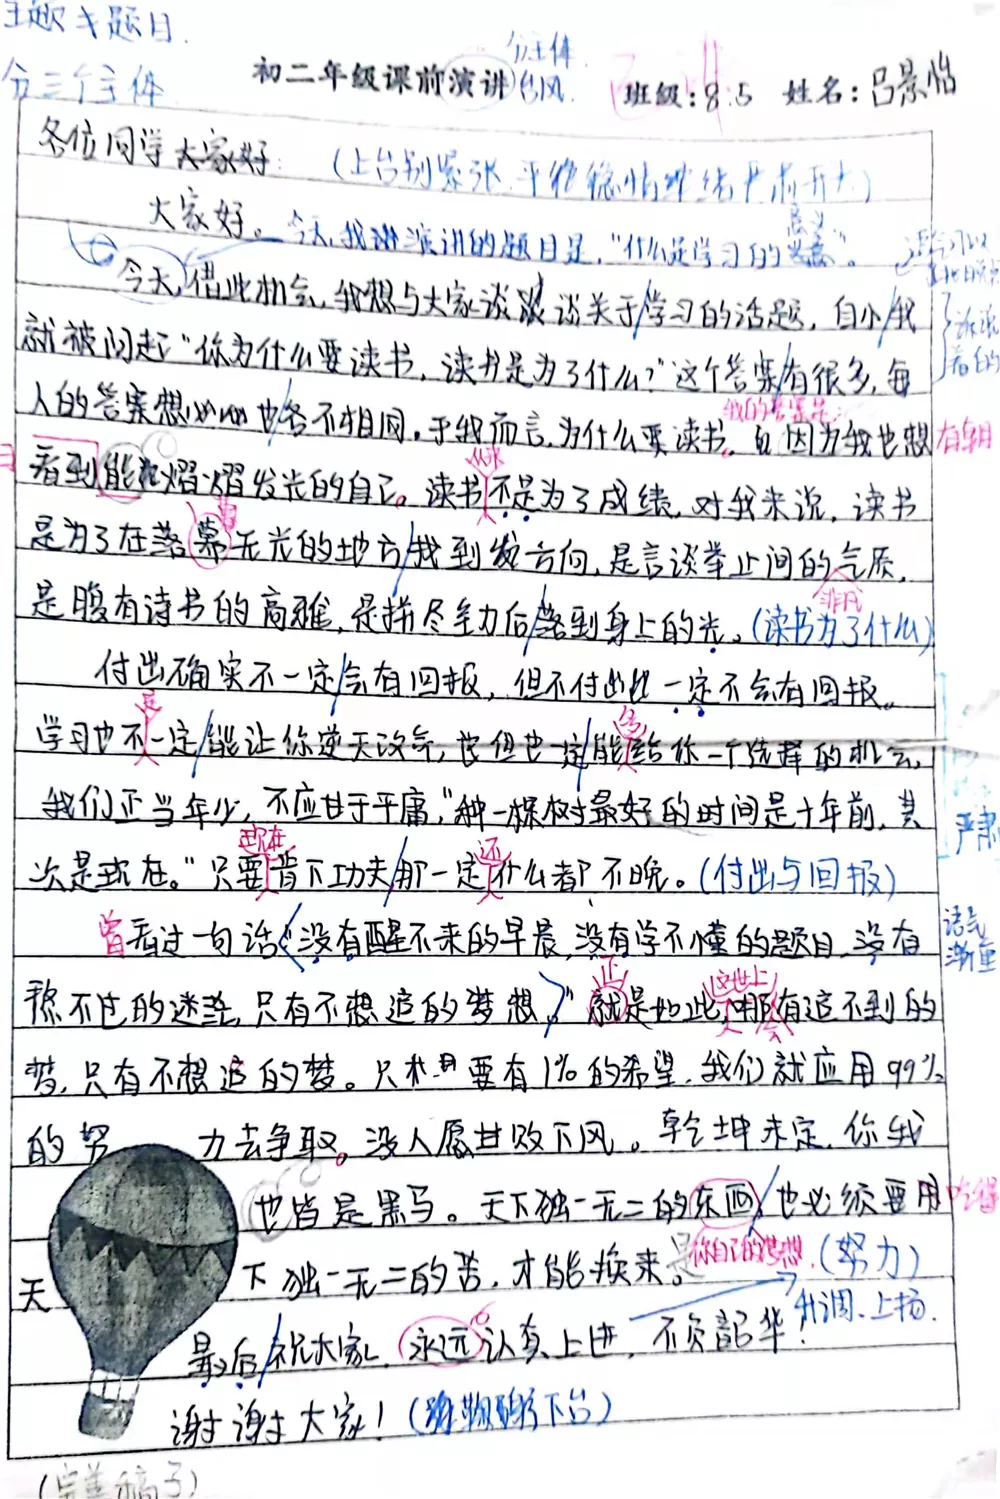 主题
题目
分三个主体
分主体
台风
初二年级课前演讲 班级:8.5 姓名:吕景怡
各位同学大家好:
(上台别紧张
大家好。今天,我演讲的题目是,"什么是学习的意义"。
今天,借此机会,我想与大家谈谈关于学习的话题,自小我
就被问起"你为什么要读书,读书是为了什么?"这个答案有很多,每
人的答案想必也各不相同。于我而言,为什么要读书。因为我也想
我的答案是:
看到能熠熠发光的自己。读书不是为了成绩,对我来说,读书
从来
是为了在落幕无光的地方找到发方向,是言谈举止间的气质,
非凡
是腹有诗书的高雅,是拼尽全力后落到身上的光。(读书为了什么)
付出确实不一定会有回报,但不付出一定不会有回报。
学习也不一定能让你逆天改命,但也一定能给你一个选择的机会,
是
多
我们正当年少,不应甘于平庸,"种一棵树最好的时间是十年前,其
严肃
次是现在。"只要肯下功夫,那一定什么都不晚。(付出与回报)
现在
还
曾看过一句话"没有醒不来的早晨,没有学不懂的题目,没有
语气
渐重
不过的迷 只有不想追的梦想。"就是如此,哪有追不到的
正
这世上
会
梦,只有不想追的梦。只要有1%的希望,我们就应用99%
的努力去争取。没人愿甘败下风。乾坤未定,你我
也皆是黑马。天下独一无二的东西,也必须要用
你自己的梦想
天下独一无二的苦,才能换来。(努力)
最后祝大家,永远认真上进,不负韶华!
升调、上扬.
谢谢大家!(鞠躬谢下台)
(完善稿子)